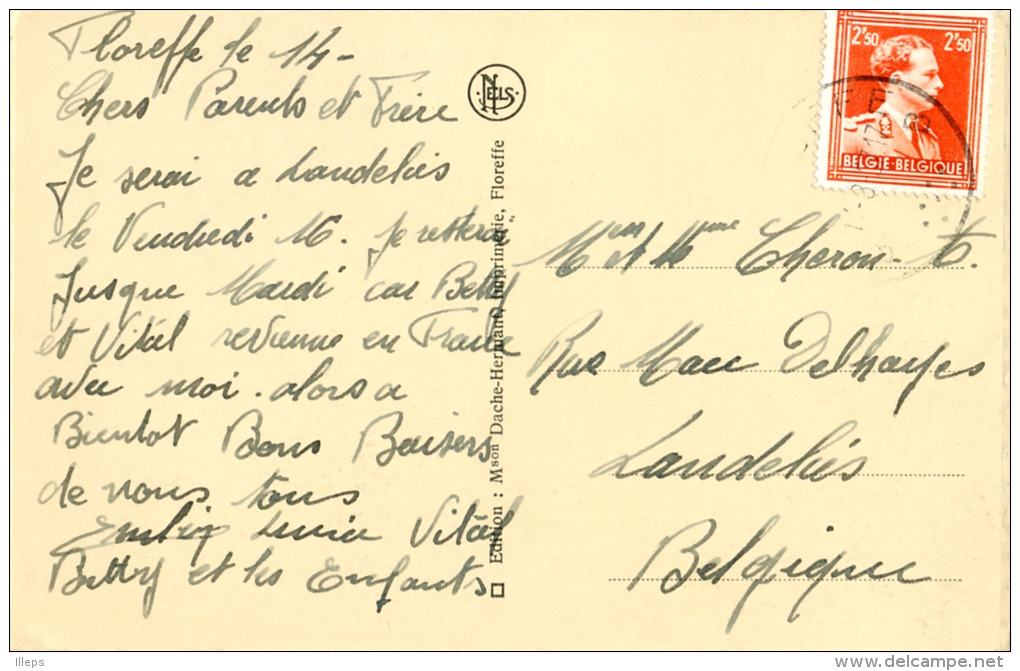 Floreffe le 14-
Chers Parents et Frère
Je serai a Landelies
le Vendredi 16. je resterai
Jusque Mardi car Betty
et Vital revienne en France
avec moi. alors a
Bientot Bons Baisers
de nous tous
Lucie Vital
Betty et les Enfants
NELS
Edition : Mson Dache-Hermant, Imprimerie, Floreffe
2F50 2F50
BELGIE-BELGIQUE
Mr et Mme Cheron-t.
Rue Delhayes
Landelies
Belgique
Illeps
delcampe.net